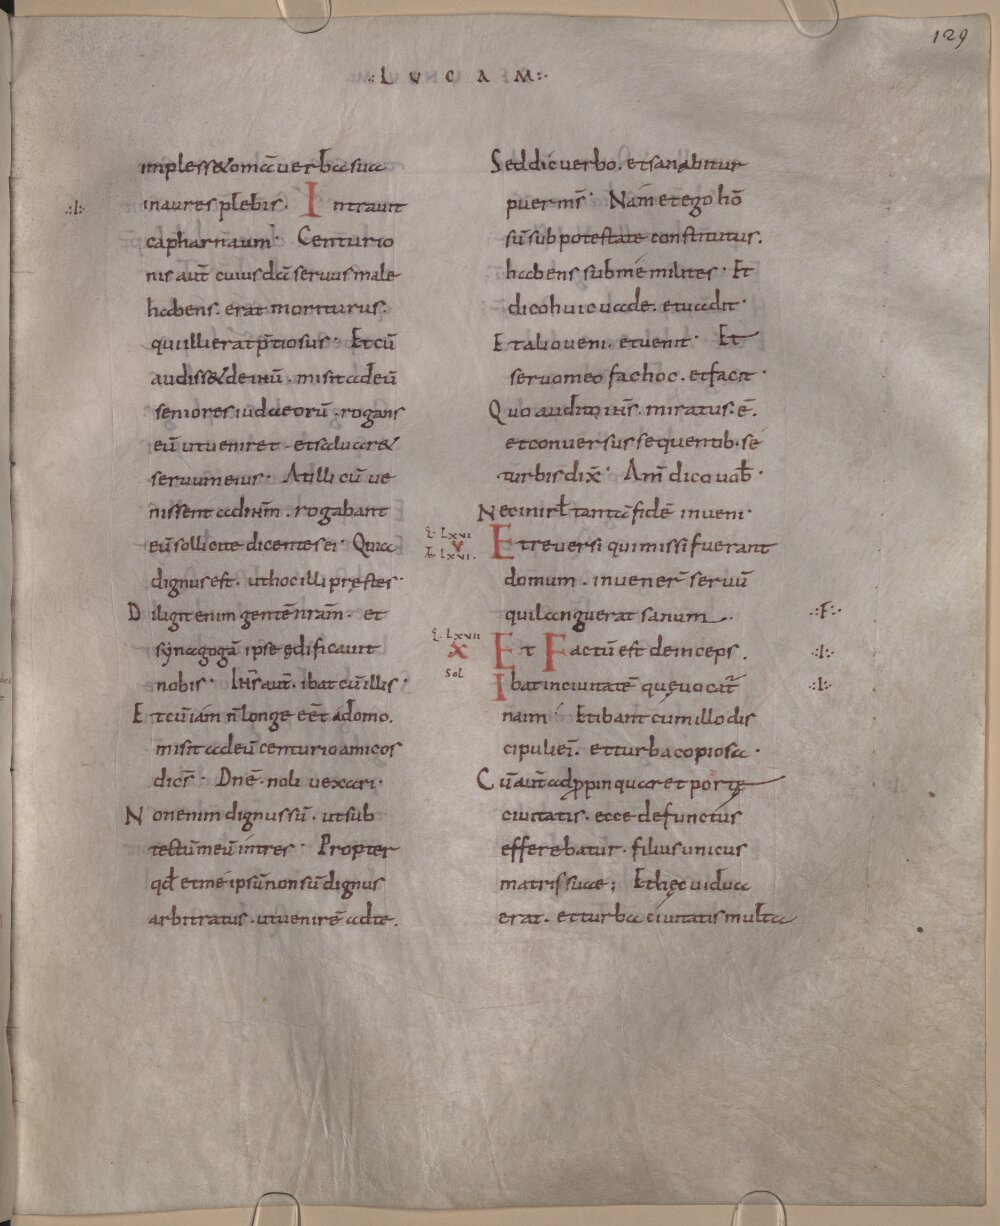 129
.:LVCAM:.
impless& omnia verba sua
.:I:.
in aures plebis. Intravit
capharnaum. Centurio
nis aut̄ cuiusdā servus male
habens. erat moriturus.
qui illi erat p̄tiosus. Et cū
audiss& de ihū. misit ad eū
seniores iudaeorū. rogans
eū ut veniret. et salvar&
servum eius. At illi cū ve
nissent ad ihm̄. rogabant
eū sollicite dicentes ei. Quia
dignus est. ut hoc illi prestes.
Diligit enim gentē nram̄. et
synagogā ipse ędificavit
nobis. Ihs̄ aut̄. ibat cū illis.
Et cū iam n̄ longe eēt a domo.
misit ad eū centurio amicos
dics̄. Dnē. noli vexari.
Non enim dignus sū. ut sub
tectū meū intres. Propter
qd̄ et me ipsū non sū dignus
arbitratus. ut venirē ad te.
Sed dic verbo. et sanabitur
puer ms̄. Nam et ego hō
sū sub potestate constitutus.
habens sub me milites. Et
dico huic vade. et vadit.
Et alio veni. et venit. Et
servo meo fac hoc. et facit.
Quo audito ihs̄. miratus. ē.
et conversus sequentib. se
turbis dix̄. Am̄ dico vob̄.
Nec in irl̄ tantā fidē inveni.
E. LXVI
V
T. LXVI.
Et reversi qui missi fuerant
domum. invener̄ servū
qui languerat sanum.
.:F:.
E. LXVII
X
Et Factū est deinceps.
.:I:.
Sol
Ibat in civitatē quę vocat̄
.:I:.
naim. Et ibant cum illo dis
cipuli ei. et turba copiosa.
Cū aut̄ adpropinquaret portę
civitatis. ecce defunctus
efferebatur. filius unicus
matris suae; Et hęc vidua
erat. et turba civitatis multa